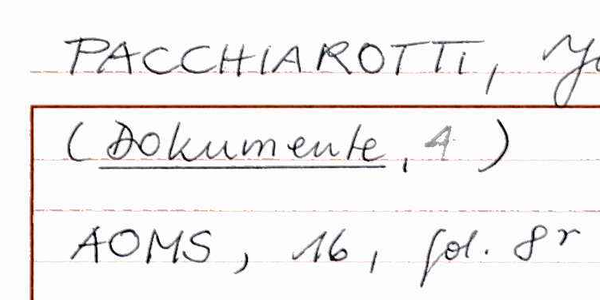 PACCHIAROTTI,
(Dokumente, 4)
AOMS, 16, fol. 8r